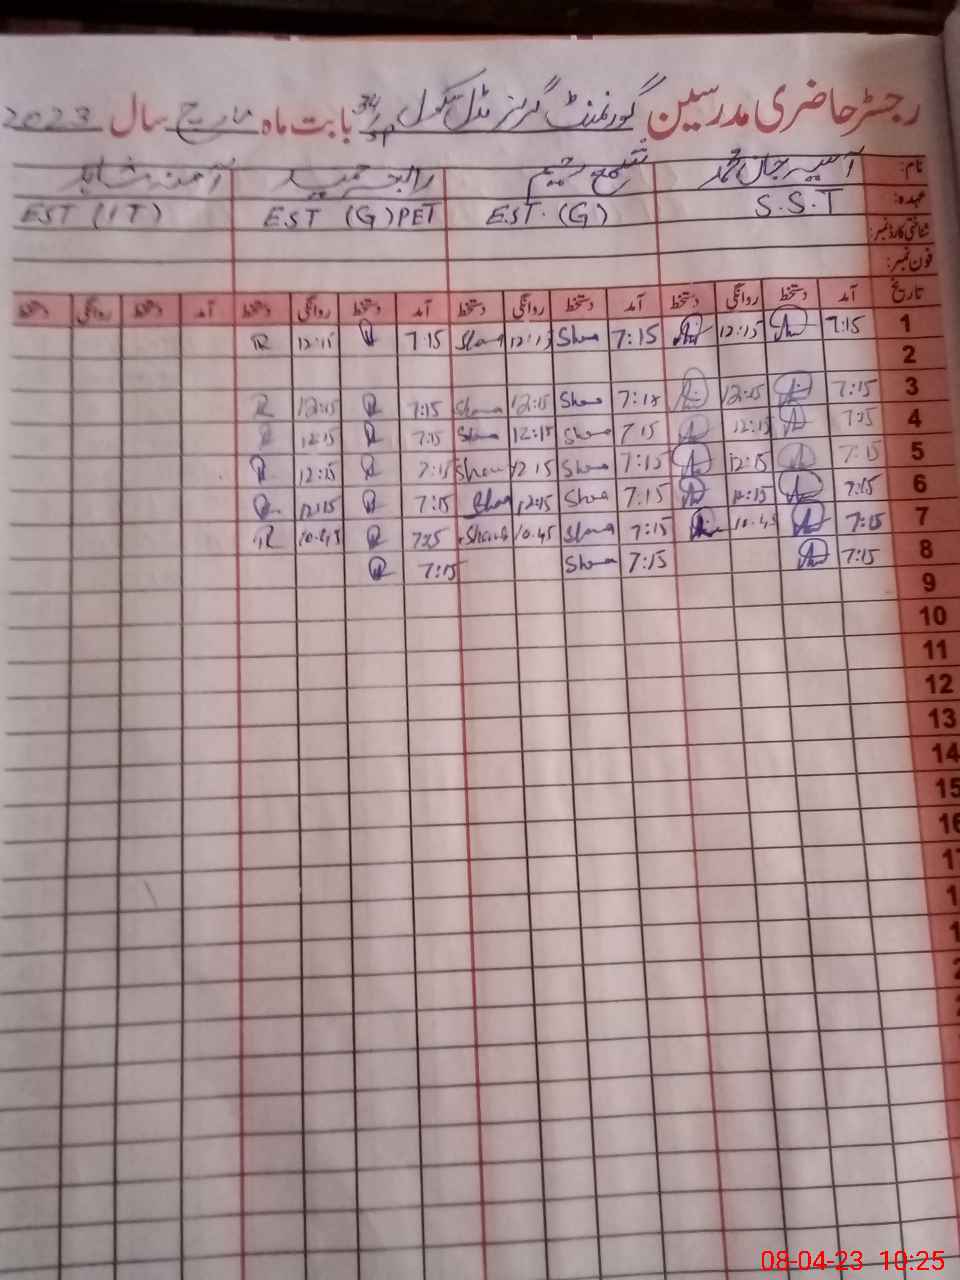 رجسٹر حاضری مدرسین گورنمنٹ گرلز مڈل سکول 34/SP بابت ماہ مارچ سال 2023
نام: آسیہ جان محمد شمع شمیم رابعہ حمید آمنہ
عہدہ: S.S.T EST.(G) EST (G) PET EST (IT)
شناختی کارڈ نمبر:
فون نمبر:
تاریخ آمد دستخط روانگی دستخط آمد دستخط روانگی دستخط آمد دستخط روانگی دستخط آمد دستخط روانگی دستخط
1 7:15 12:15 7:15 Sham 12:15 Sham 7:15 R 12:15 R
2
3 7:15 12:15 7:15 Sham 12:15 Sham 7:15 R 12:15 R
4 7:15 12:15 7 15 Sham 12:15 Sham 7:15 R 12:15 R
5 7:15 12:15 7:15 Sham 12 15 Sham 7:15 R 12:15 R
6 7:15 12:15 7:15 Sham 12:15 Sham 7:15 R 12:15 R
7 7:15 10.45 7:15 Sham 10.45 Sham R 10.45 R
8 7:15 7:15 Sham 7:15 R
9
10
11
12
13
14
15
16
08-04-23 10:25